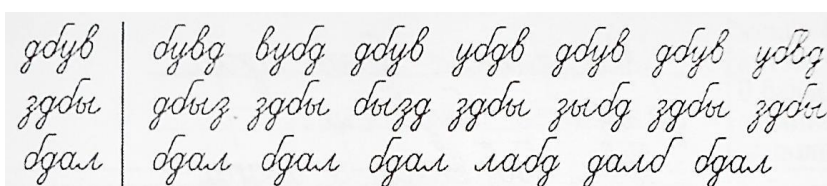 дбув | бувд вубд дбув убдв дбув дбув убвд
здбы | дбыз здбы бызд здбы зыбд здбы здбы
бдал | бдал бдал бдал лабд далб бдал